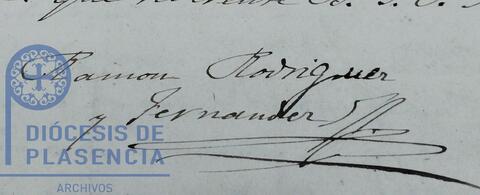 que
Ramon Rodriguez
y Fernandez
DIÓCESIS DE
PLASENCIA
ARCHIVOS